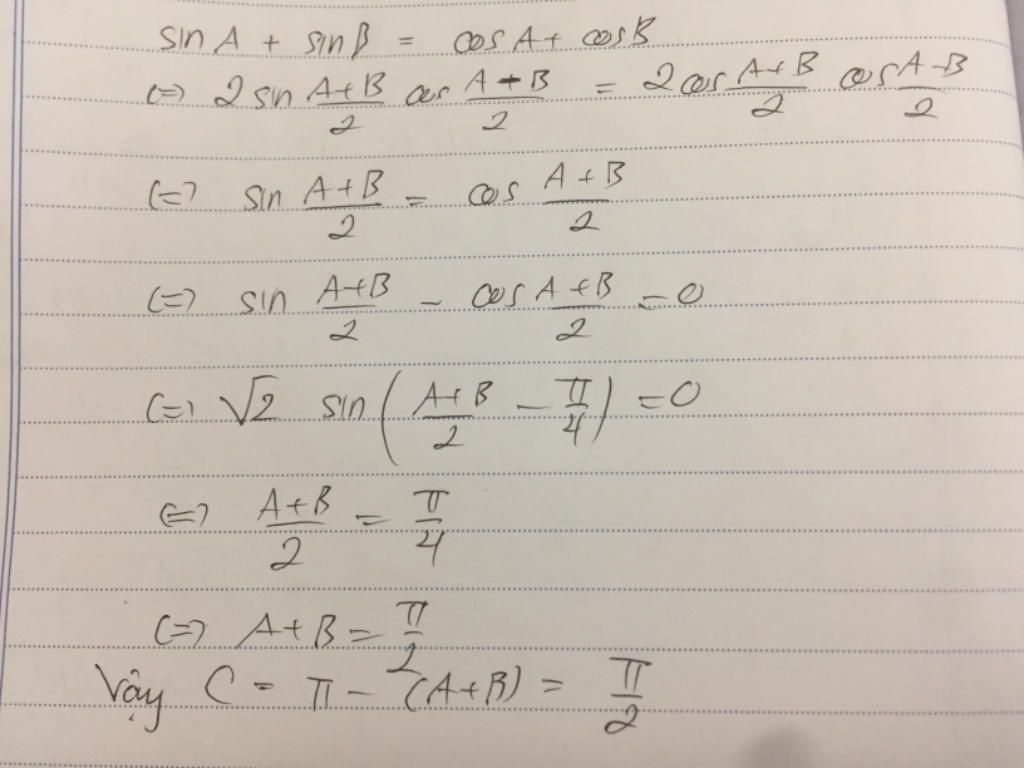 sin A + sin B = cos A + cos B
(=) 2 sin (A+B)/2 cos (A+B)/2 = 2 cos (A+B)/2 cos (A-B)/2
(=) sin (A+B)/2 = cos (A+B)/2
(=) sin (A+B)/2 - cos (A+B)/2 = 0
(=) √2 sin ( (A+B)/2 - π/4 ) = 0
(=) (A+B)/2 = π/4
(=) A+B = π/2
Vậy C = π - (A+B) = π/2